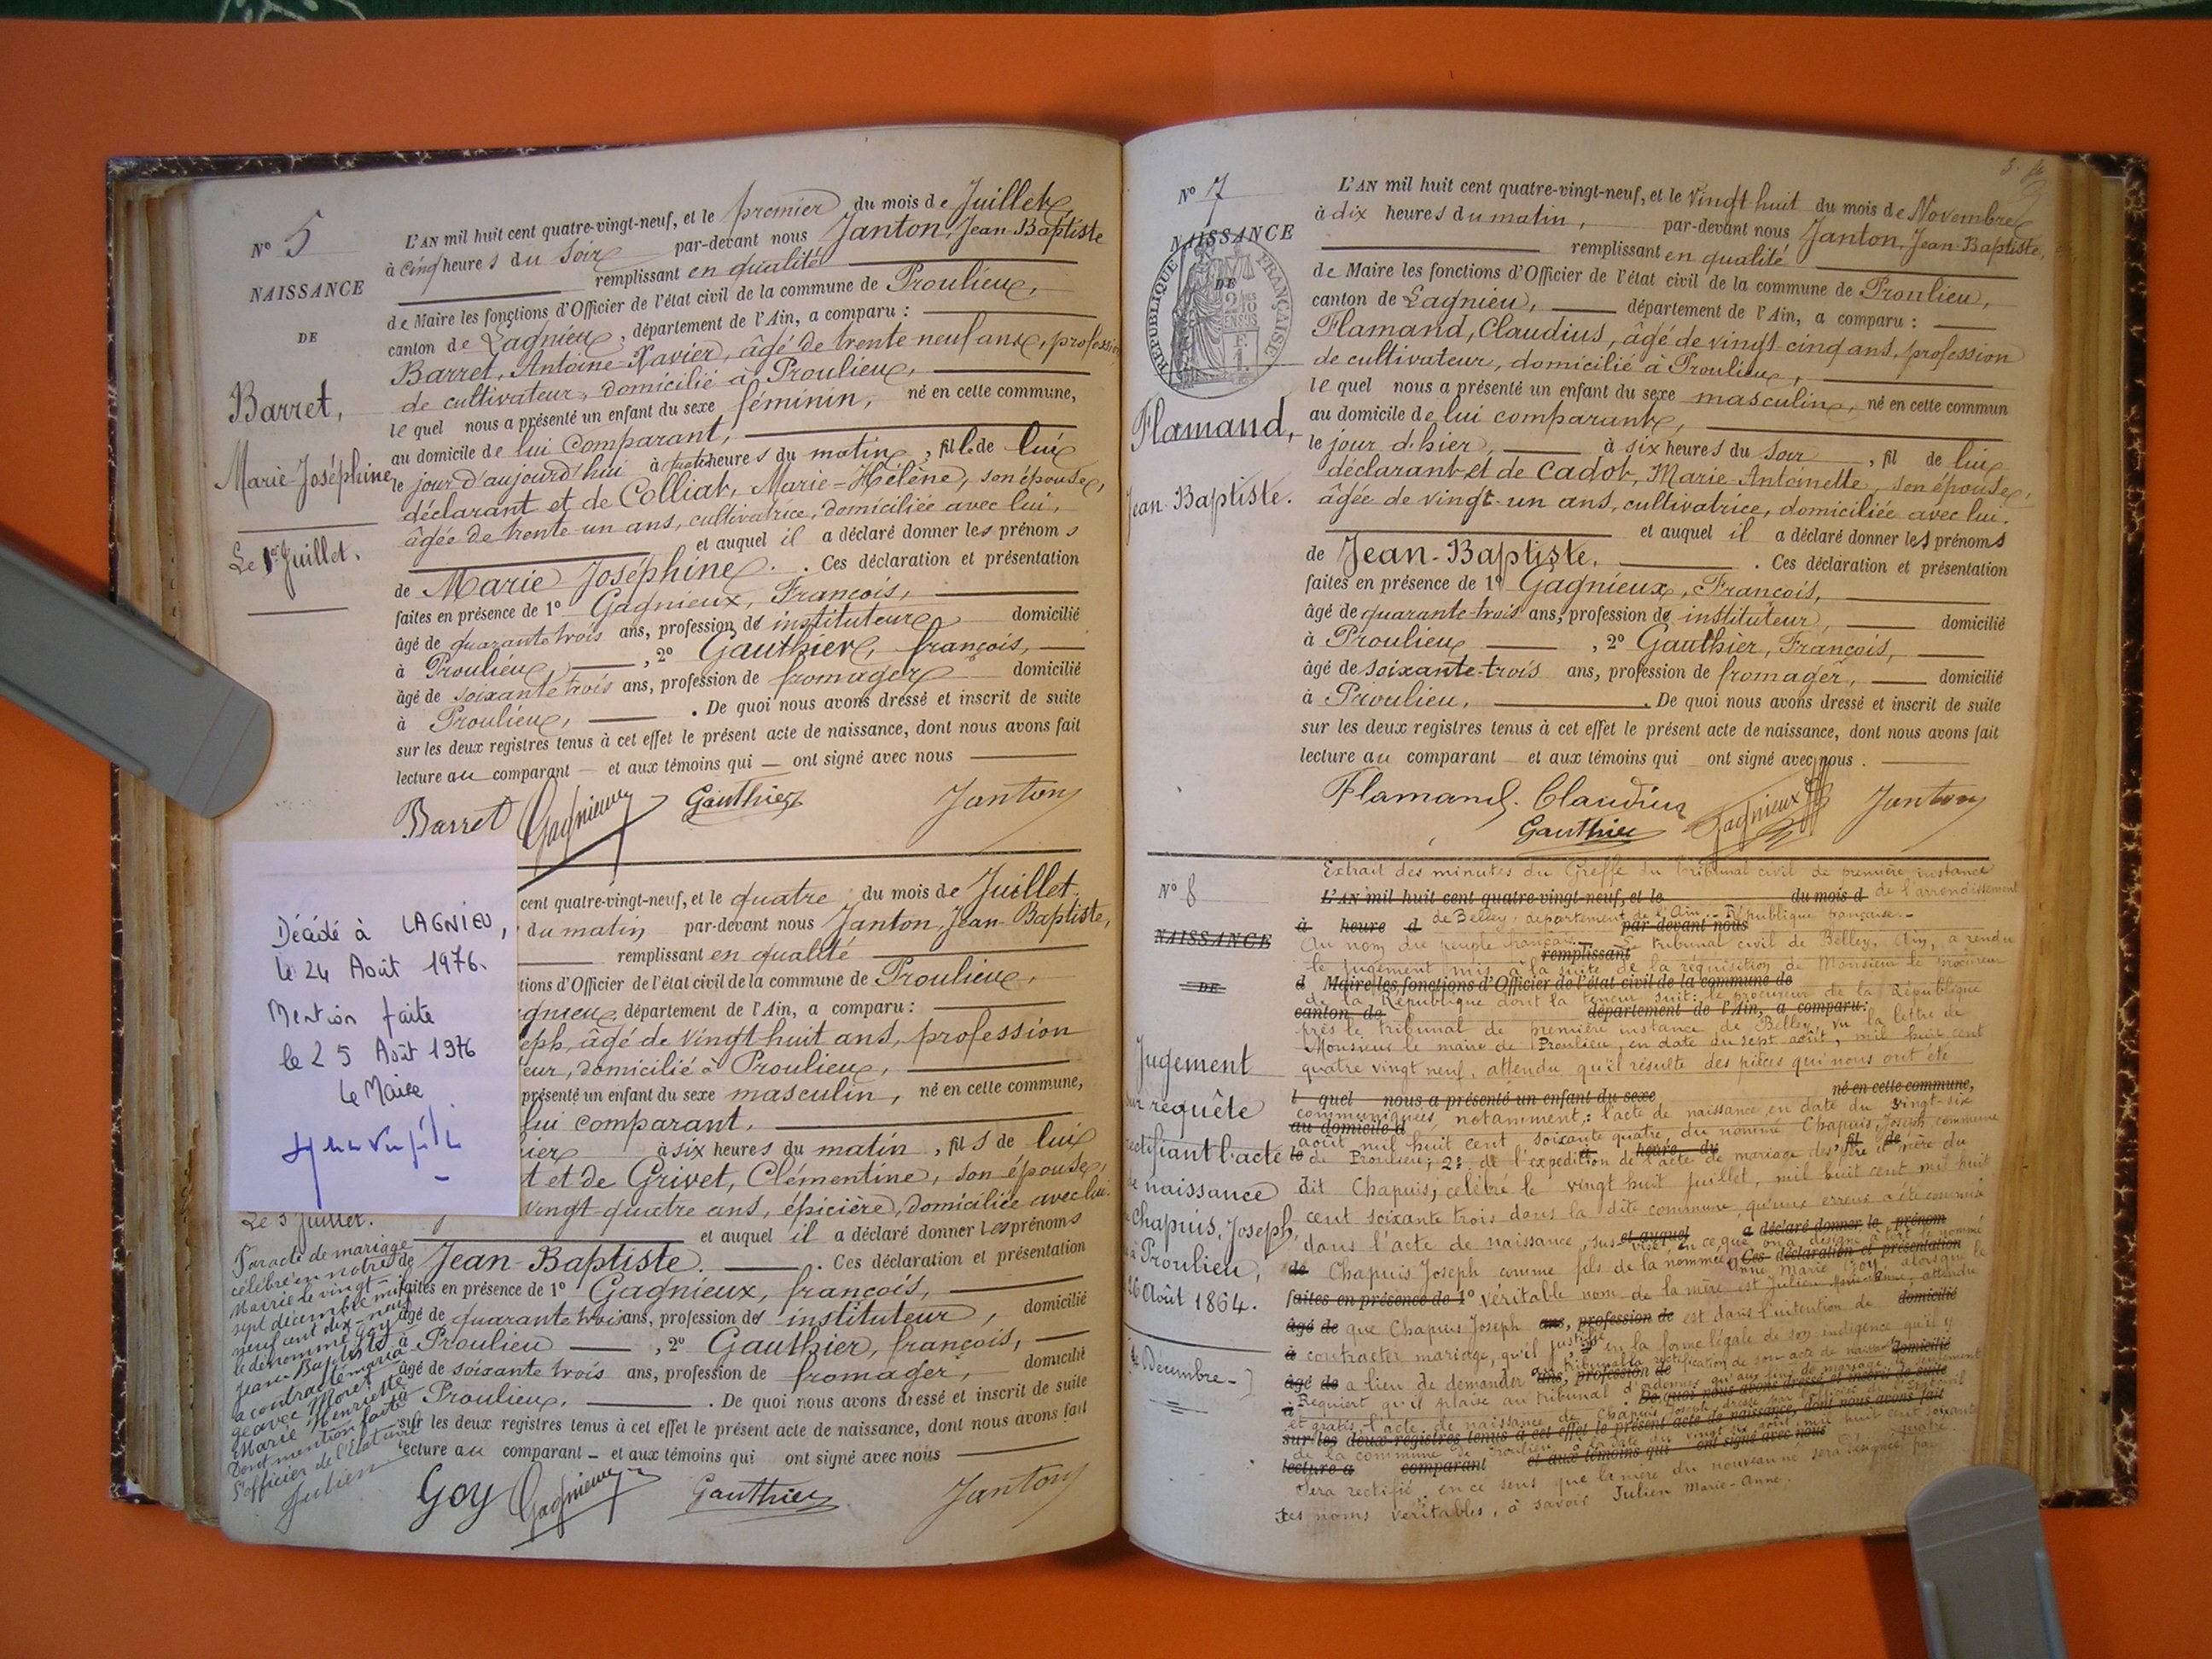 N° 5
NAISSANCE
DE
Barret,
Marie-Joséphine
Le 1er Juillet.
L'AN mil huit cent quatre-vingt-neuf, et le premier du mois de Juillet
à cinq heures du soir par-devant nous Janton, Jean-Baptiste
remplissant en qualité
de Maire les fonctions d'Officier de l'état civil de la commune de Proulieu,
canton de Lagnieu, département de l'Ain, a comparu :
Barret, Antoine-Xavier, âgé de trente neuf ans, profession
de cultivateur, domicilié à Proulieu,
lequel nous a présenté un enfant du sexe féminin, né en cette commune,
au domicile de lui comparant,
le jour d'aujourd'hui à heures du matin, fille de lui
déclarant et de Colliat, Marie-Hélène, son épouse,
âgée de trente un ans, cultivatrice, domiciliée avec lui,
et auquel il a déclaré donner les prénoms
de Marie Joséphine. Ces déclaration et présentation
faites en présence de 1° Gagnieux, François,
âgé de quarante trois ans, profession de instituteur domicilié
à Proulieu, 2° Gauthier, françois,
âgé de soixante trois ans, profession de fromager domicilié
à Proulieu, . De quoi nous avons dressé et inscrit de suite
sur les deux registres tenus à cet effet le présent acte de naissance, dont nous avons fait
lecture au comparant et aux témoins qui ont signé avec nous
Barret Gagnieux Gauthier Janton
Décédé à LAGNIEU,
le 24 Août 1976.
Mention faite
le 25 Août 1976
Le Maire
cent quatre-vingt-neuf, et le quatre du mois de Juillet
du matin par-devant nous Janton, Jean-Baptiste,
remplissant en qualité
tions d'Officier de l'état civil de la commune de Proulieu,
gnieu, département de l'Ain, a comparu :
eph, âgé de vingt huit ans, profession
eur, domicilié à Proulieu,
présenté un enfant du sexe masculin, né en cette commune,
lui comparant,
ier à six heures du matin, fils de lui
t et de Grivet, Clémentine, son épouse,
vingt-quatre ans, épicière, domiciliée avec lui.
et auquel il a déclaré donner les prénoms
de Jean-Baptiste. Ces déclaration et présentation
faites en présence de 1° Gagnieux, françois,
âgé de quarante trois ans, profession de instituteur, domicilié
à Proulieu, 2° Gauthier, françois,
âgé de soixante trois ans, profession de fromager, domicilié
à Proulieu, . De quoi nous avons dressé et inscrit de suite
sur les deux registres tenus à cet effet le présent acte de naissance, dont nous avons fait
lecture au comparant et aux témoins qui ont signé avec nous
Goy Gagnieux Gauthier Janton
Le 3 Juillet.
Par acte de mariage
célébré en notre
Mairie le vingt-
sept décembre mil
neuf cent dix-neuf
le dénommé Goy
Jean Baptiste
a contracté maria
ge avec Moret
Marie Henriette
Dont mention faite
l'officier de l'état civil
Julien
N° 7
NAISSANCE
DE
RÉPUBLIQUE FRANÇAISE
Flamand,
Jean-Baptiste.
L'AN mil huit cent quatre-vingt-neuf, et le vingt huit du mois de Novembre
à dix heures du matin, par-devant nous Janton, Jean-Baptiste,
remplissant en qualité
de Maire les fonctions d'Officier de l'état civil de la commune de Proulieu,
canton de Lagnieu, département de l'Ain, a comparu :
Flamand, Claudius, âgé de vingt cinq ans, profession
de cultivateur, domicilié à Proulieu,
lequel nous a présenté un enfant du sexe masculin, né en cette commun
au domicile de lui comparant,
le jour d'hier, à six heures du soir, fil de lui
déclarant et de Cadot, Marie-Antoinette, son épouse,
âgée de vingt-un ans, cultivatrice, domiciliée avec lui.
et auquel il a déclaré donner les prénoms
de Jean-Baptiste. . Ces déclaration et présentation
faites en présence de 1° Gagnieux, François,
âgé de quarante-trois ans, profession de instituteur, domicilié
à Proulieu, 2° Gauthier, François,
âgé de soixante-trois ans, profession de fromager, domicilié
à Proulieu, . De quoi nous avons dressé et inscrit de suite
sur les deux registres tenus à cet effet le présent acte de naissance, dont nous avons fait
lecture au comparant et aux témoins qui ont signé avec nous.
Flamand. Claudius Gagnieux Janton
Gauthier
N° 8
NAISSANCE
DE
Jugement
sur requête
rectifiant l'acte
de naissance
Chapuis, Joseph,
à Proulieu,
26 Août 1864.
Décembre
Extrait des minutes du Greffe du tribunal civil de première instance
L'AN mil huit cent quatre-vingt-neuf, et le du mois d
de l'arrondissement
de Belley, département de l'Ain. République française.
à heure d par-devant nous
Au nom du peuple français. Le tribunal civil de Belley, Ain, a rendu
remplissant
le jugement mis à la suite de la réquisition de Monsieur le Procureur
d Maire les fonctions d'Officier de l'état civil de la commune de
de la République dont la teneur suit: le procureur de la République
canton de département de l'Ain, a comparu:
près le tribunal de première instance de Belley, vu la lettre de
Monsieur le maire de Proulieu, en date du sept août, mil huit cent
quatre vingt neuf, attendu qu'il résulte des pièces qui nous ont été
l quel nous a présenté un enfant du sexe né en cette commune,
communiquées, notamment: l'acte de naissance en date du vingt-six
au domicile d
août mil huit cent soixante quatre, du nommé Chapuis, Joseph commune
le à heure du fil de
de Proulieu; 2° de l'expédition de l'acte de mariage des père et mère du
dit Chapuis, célébré le vingt huit Juillet, mil huit cent mil huit
cent soixante trois dans la dite commune, qu'une erreur a été commise
et auquel a déclaré donner le prénom
dans l'acte de naissance, sus visé en ce que on a désigné à tort le nommé
de Ces déclaration et présentation
Chapuis Joseph comme fils de la nommée Anne Marie Goy alorsque le
faites en présence de 1° véritable nom de la mère est Julien Marie Anne, attendu
âgé de ans, profession de domicilié
que Chapuis Joseph est dans l'intention de
à contracter mariage, qu'il justifie en la forme légale de son indigence qu'il y
domicilié
âgé de ans, profession de
a lieu de demander au tribunal la rectification de son acte de naissance
à . De quoi nous avons dressé et inscrit de suite
Requiert qu'il plaise au tribunal d'ordonner qu'aux fins de mariage seulement
et gratis, l'acte de naissance de Chapuis Joseph dressé
sur les deux registres tenus à cet effet le présent acte de naissance, dont nous avons fait
lecture a comparant et aux témoins qui ont signé avec nous
sera rectifié, en ce sens que la mère du nouveau né sera désignée par
ses noms véritables, à savoir Julien Marie-Anne.